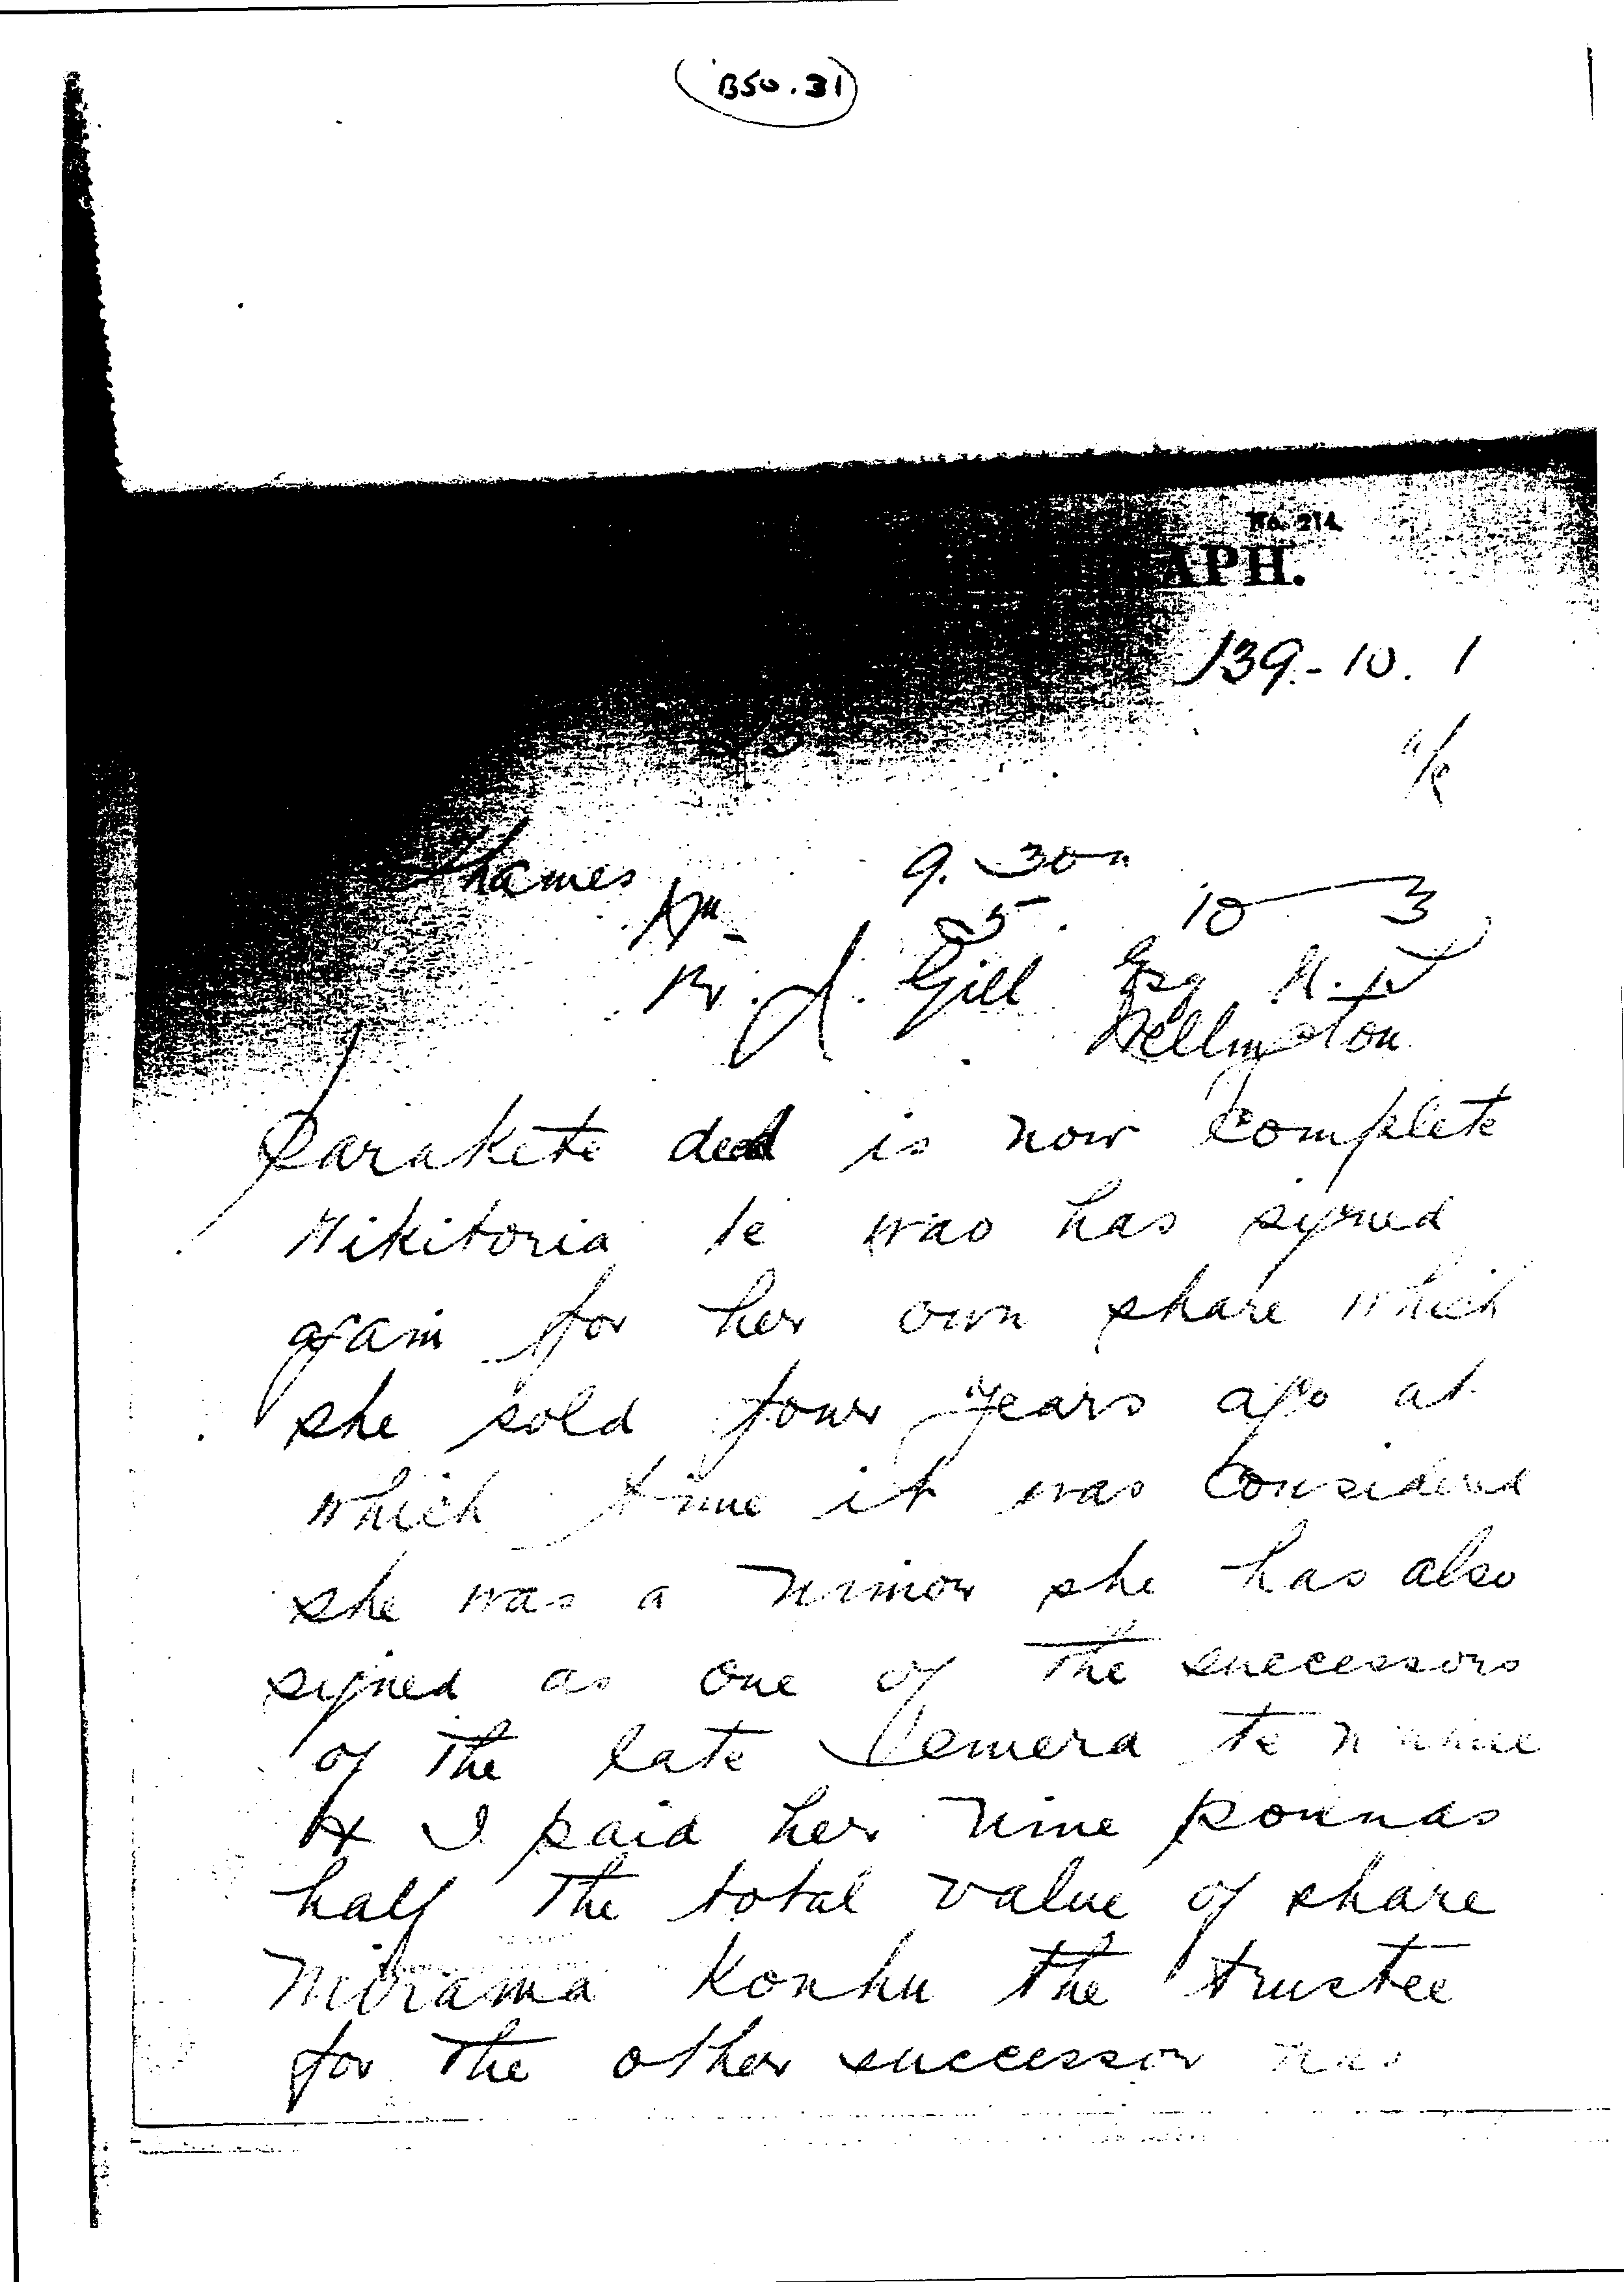 B50.31
No. 214
APH.
139.-10. 1
Thames 9.30a
25. 10 3
R. J. Gill Esq
Wellington
Parakete deed is now complete
Wikitoria te was has signed
again for her own share which
she sold four years ago at
which time it was considered
she was a minor she has also
signed as one of the successors
of the late Temera te
I paid her nine pounds
half the total value of share
Mirama Konhu the trustee
for the other successor has